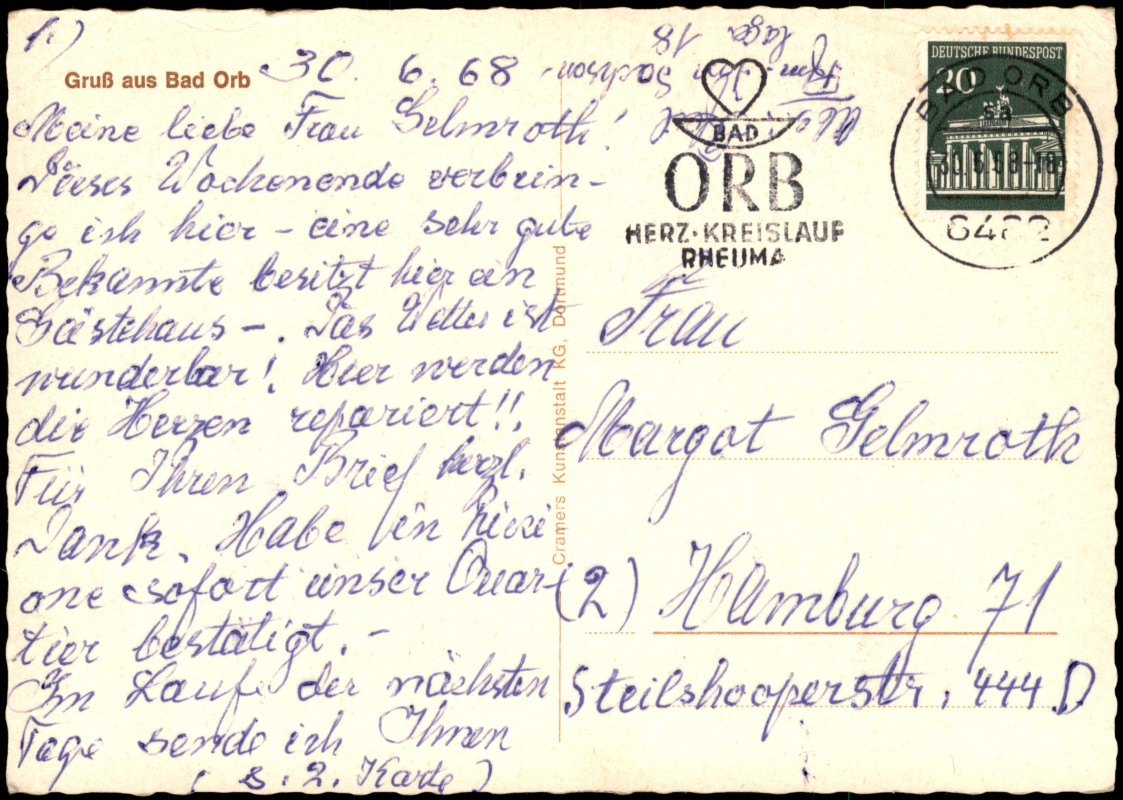 1.)
Gruß aus Bad Orb
30. 6. 68
Meine liebe Frau Gelmroth!
Dieses Wochenende verbrin-
ge ich hier - eine sehr gute
Bekannte besitzt hier ein
Gästehaus -. Das Wetter ist
wunderbar! Hier werden
die Herzen repariert!!
Für Ihren Brief herzl.
Dank. Habe in
one sofort unser Quar-
tier bestätigt. -
Im Laufe der nächsten
Tage sende ich Ihnen
(s. 2. Karte)
Cramers Kunstanstalt KG, Dortmund
18
BAD
ORB
HERZ·KREISLAUF
RHEUMA
DEUTSCHE BUNDESPOST
20
BAD ORB
sa
30.6.68-18
6482
Frau
Margot Gelmroth
(2) Hamburg 71
Steilshooperstr. 444 D